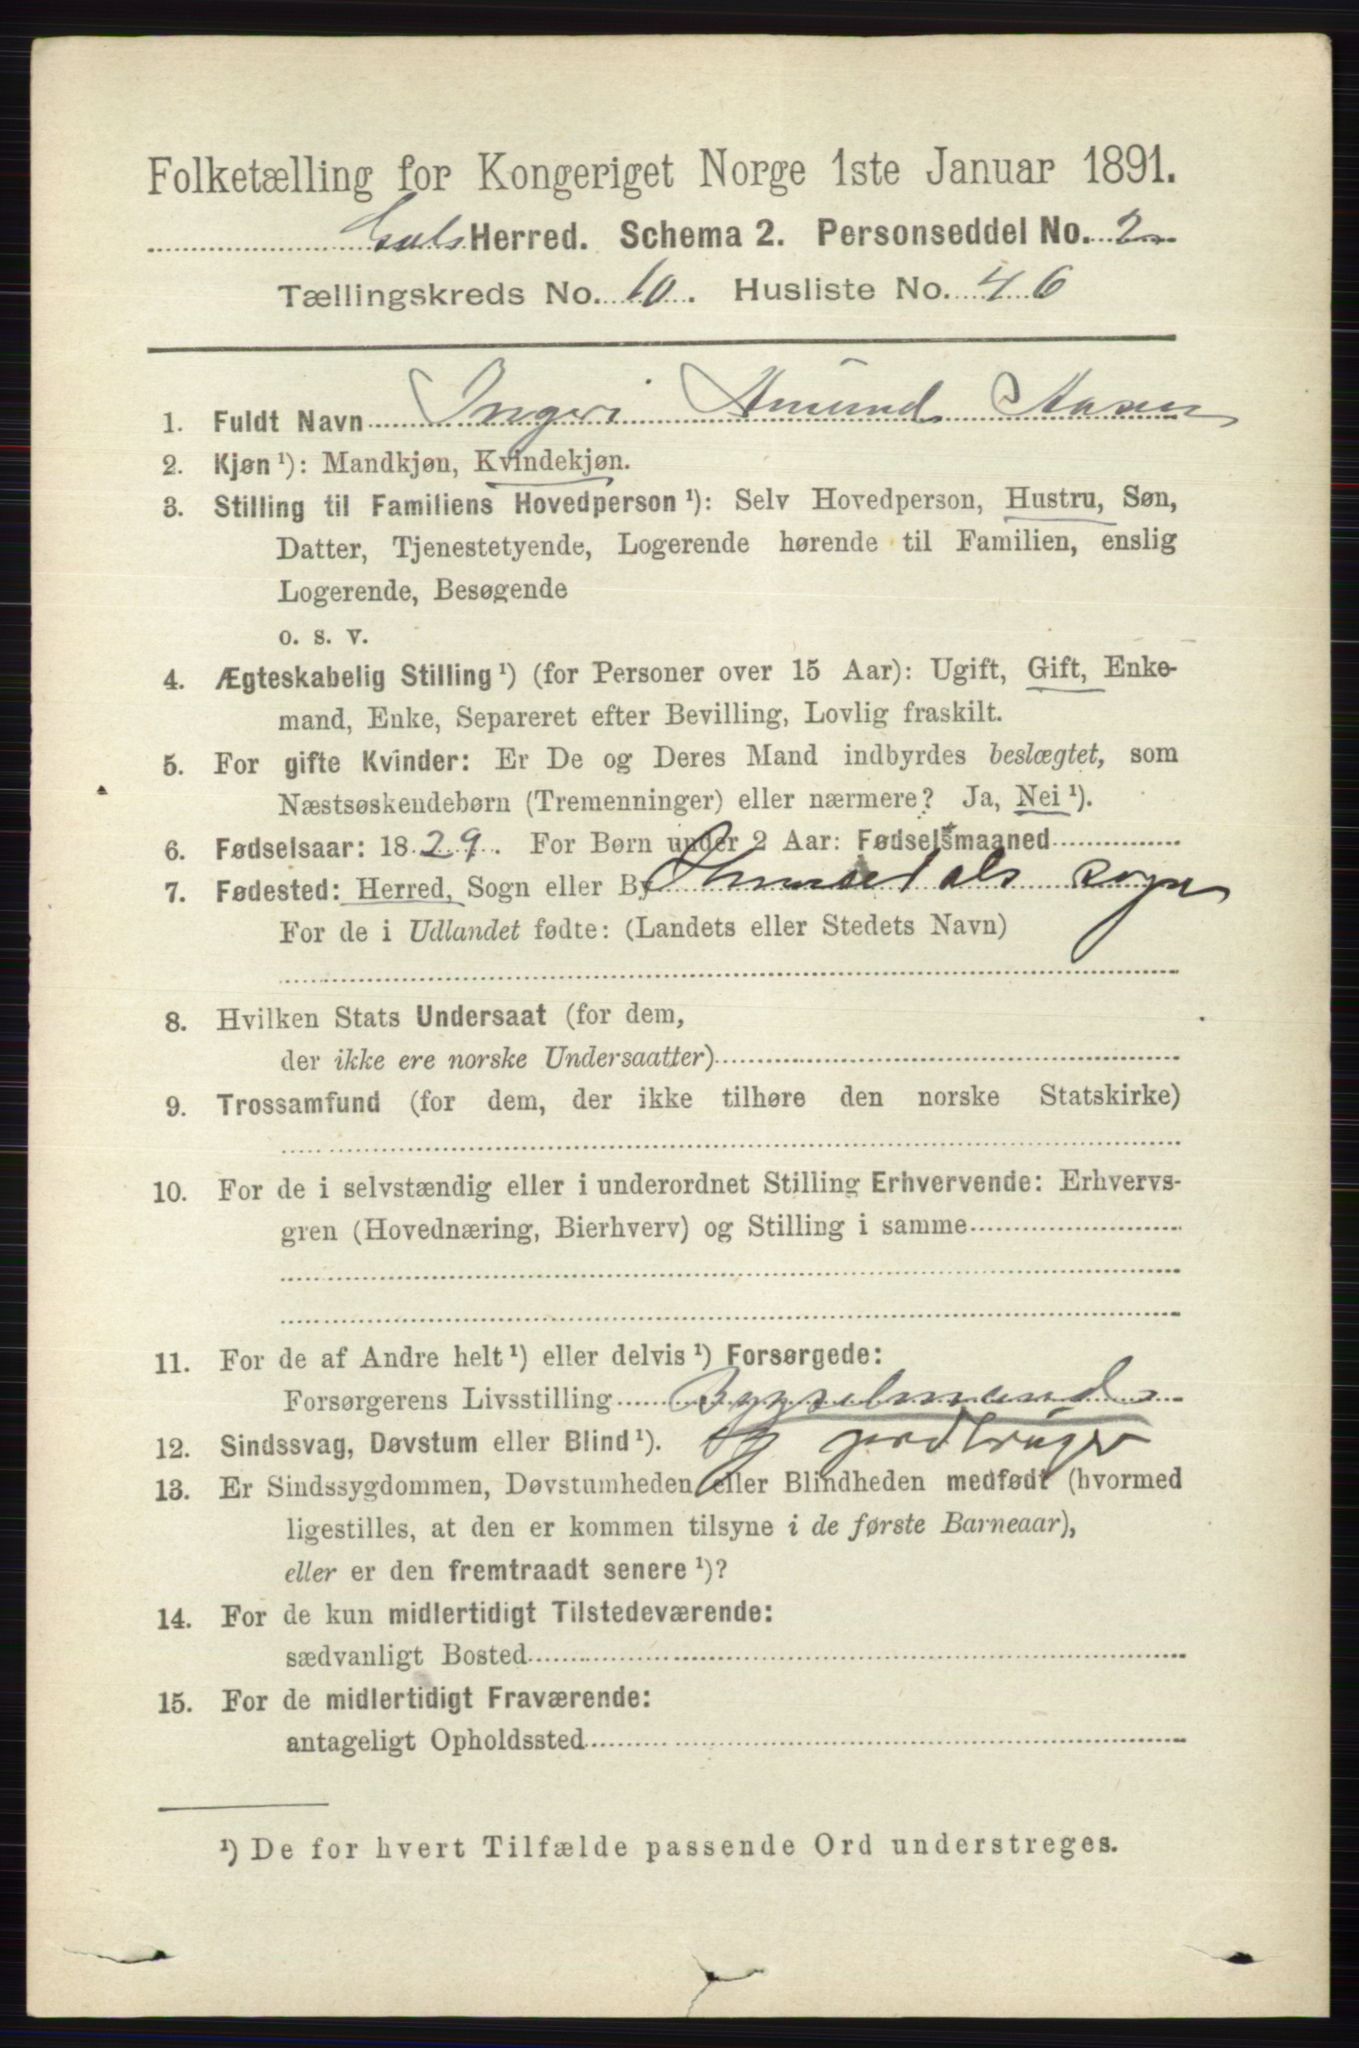 Folketælling for Kongeriget Norge 1ste Januar 1891.
Gols Herred. Schema 2. Personseddel No. 2
Tællingskreds No. 10. Husliste No. 46
1. Fuldt Navn Ingeri Amund
2. Kjøn ¹): Mandkjøn, Kvindekjøn.
3. Stilling til Familiens Hovedperson ¹): Selv Hovedperson, Hustru, Søn,
Datter, Tjenestetyende, Logerende hørende til Familien, enslig
Logerende, Besøgende
o. s. v.
4. Ægteskabelig Stilling ¹) (for Personer over 15 Aar): Ugift, Gift, Enke-
mand, Enke, Separeret efter Bevilling, Lovlig fraskilt.
5. For gifte Kvinder: Er De og Deres Mand indbyrdes beslægtet, som
Næstsøskendebørn (Tremenninger) eller nærmere? Ja, Nei ¹).
6. Fødselsaar: 1829. For Børn under 2 Aar: Fødselsmaaned
7. Fødested: Herred, Sogn eller By Hemsedals Sogn
For de i Udlandet fødte: (Landets eller Stedets Navn)
8. Hvilken Stats Undersaat (for dem,
der ikke ere norske Undersaatter)
9. Trossamfund (for dem, der ikke tilhøre den norske Statskirke)
10. For de i selvstændig eller i underordnet Stilling Erhvervende: Erhvervs-
gren (Hovednæring, Bierhverv) og Stilling i samme
11. For de af Andre helt ¹) eller delvis ¹) Forsørgede:
Forsørgerens Livsstilling Bygselmand
12. Sindssvag, Døvstum eller Blind ¹). og jordbruger
13. Er Sindssygdommen, Døvstumheden eller Blindheden medfødt (hvormed
ligestilles, at den er kommen tilsyne i de første Barneaar),
eller er den fremtraadt senere ¹)?
14. For de kun midlertidigt Tilstedeværende:
sædvanligt Bosted
15. For de midlertidigt Fraværende:
antageligt Opholdssted
¹) De for hvert Tilfælde passende Ord understreges.